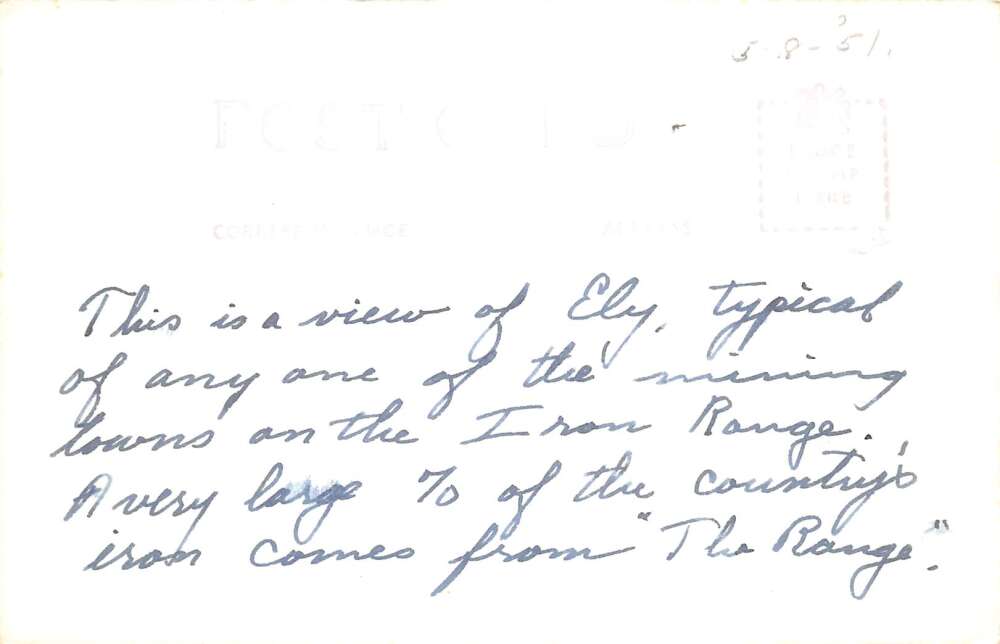 5-8-'51.
POST CARD
CORRESPONDENCE ADDRESS
PLACE
STAMP
HERE
This is a view of Ely, typical
of any one of the mining
towns on the Iron Range.
A very large % of the country's
iron comes from "The Range".